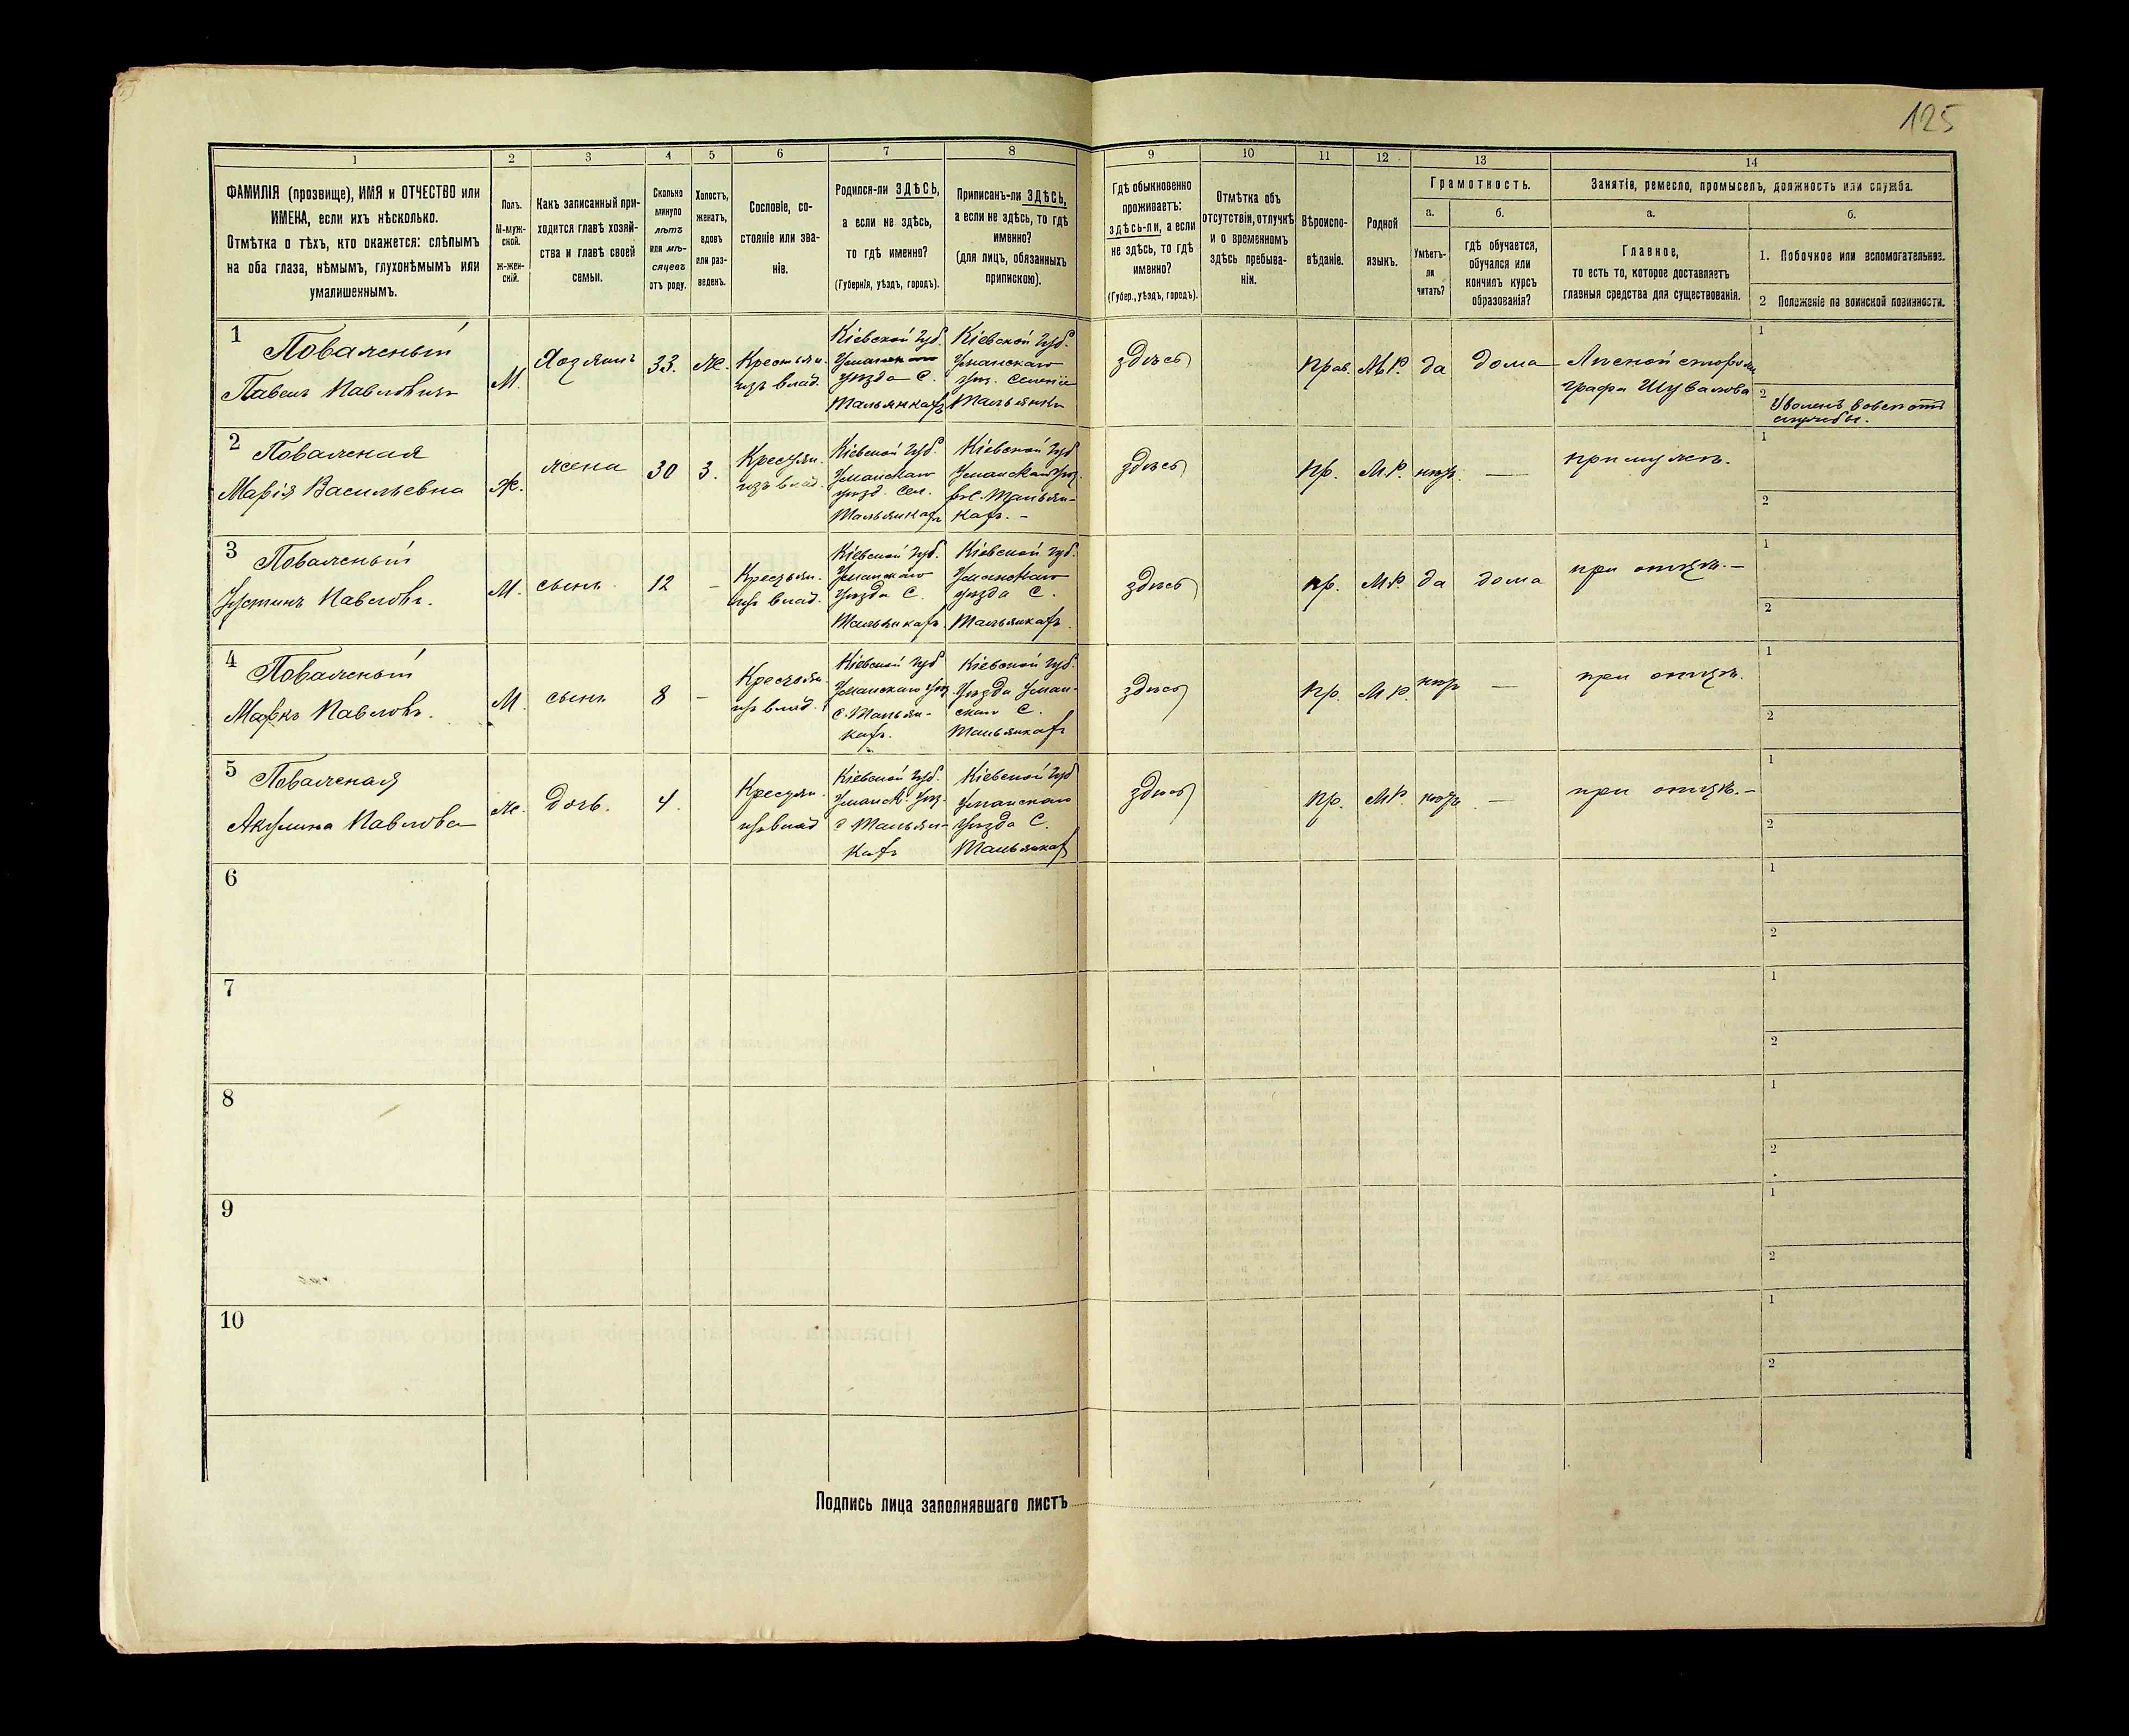 125
1
2
3
4
5
6
7
8
9
10
11
12
13
14
ФАМИЛІЯ (прозвище), ИМЯ и ОТЧЕСТВО или
ИМЕНА, если ихъ нѣсколько.
Отмѣтка о тѣхъ, кто окажется: слѣпымъ
на оба глаза, нѣмымъ, глухонѣмымъ или
умалишеннымъ.
Полъ.
М-муж-
ской.
ж-жен-
скій.
Какъ записанный при-
ходится главѣ хозяй-
ства и главѣ своей
семьи.
Сколько
минуло
лѣтъ
или мѣ-
сяцевъ
отъ роду.
Холостъ,
женатъ,
вдовъ
или раз-
веденъ.
Сословіе, со-
стояніе или зва-
ніе.
Родился-ли ЗДѢСЬ,
а если не здѣсь,
то гдѣ именно?
(Губернія, уѣздъ, городъ).
Приписанъ-ли ЗДѢСЬ,
а если не здѣсь, то гдѣ
именно?
(для лицъ, обязанныхъ
припискою).
Гдѣ обыкновенно
проживаетъ:
здѣсь-ли, а если
не здѣсь, то гдѣ
именно?
(Губер., уѣздъ, городъ).
Отмѣтка объ
отсутствіи, отлучкѣ
и о временномъ
здѣсь пребыва-
ніи.
Вѣроиспо-
вѣданіе.
Родной
языкъ.
Грамотность.
а.
Умѣетъ-
ли
читать?
б.
гдѣ обучается,
обучался или
кончилъ курсъ
образованія?
Занятія, ремесло, промыселъ, должность или служба.
а.
Главное,
то есть то, которое доставляетъ
главныя средства для существованія.
б.
1. Побочное или вспомогательное.
2 Положеніе по воинской повинности.
1
Поваженый
Павелъ Павловичъ
М.
Хозяинъ
33.
Ж.
Крестьян.
изъ влад.
Кіевской губ.
Уманскаго
уѣзда С.
Тальянкахъ
Кіевской губ.
Уманскаго
уѣз. Селеніе
Тальянки
здѣсь
Прав.
М.Р.
да
дома
Лѣсной сторожъ
графа Шувалова
1
2
Уволенъ вовсе отъ
службы.
2
Поваженая
Марія Васильевна
Ж.
жена
30
З.
Крестьян.
изъ влад.
Кіевской губ.
Уманскаго
уѣзд. Сел.
Тальянкахъ
Кіевской губ
Уманскаго уѣз.
въ С. Тальян-
кахъ. -
здѣсь
Пр.
М.Р.
нѣтъ.
—
при мужѣ.
1
2
3
Поваженый
Устинъ Павловъ.
М.
сынъ
12
–
Крестьян.
изъ влад.
Кіевской губ.
Уманскаго
уѣзда С.
Тальянкахъ.
Кіевской губ.
Уманскаго
уѣзда С.
Тальянкахъ.
здѣсь
пр.
М.Р.
да
дома
при отцѣ. —
1
2
4
Поваженый
Маркъ Павловъ.
М.
сынъ
8
–
Крестьян.
изъ влад.
Кіевской губ
Уманскаго уѣз
С. Тальян-
кахъ.
Кіевской губ.
Уѣзда Уман-
скаго С.
Тальянкахъ
здѣсь
пр.
М.Р.
нѣтъ
—
при отцѣ.
1
2
5
Поваженая
Акулина Павлова
Ж.
дочь.
4.
Крестьян.
изъ влад
Кіевской губ.
Уманск. уѣз.
с Тальян-
кахъ
Кіевской губ
Уманскаго
уѣзда С.
Тальянкахъ
здѣсь
пр.
М.Р.
нѣтъ
—
при отцѣ. -
1
2
6
1
2
7
1
2
8
1
2
9
1
2
10
1
2
Подпись лица заполнявшаго листъ